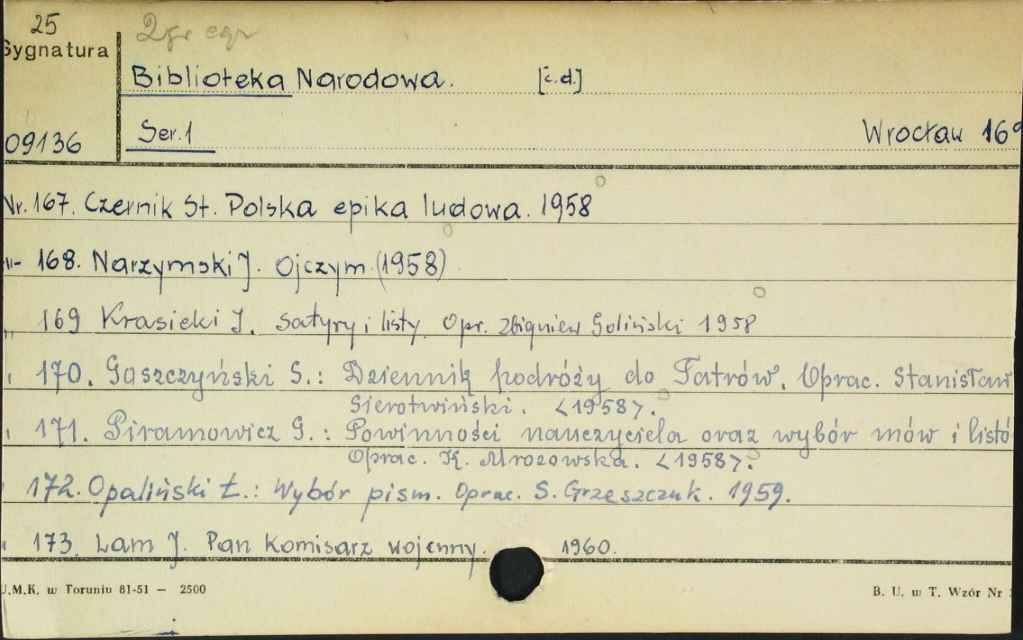 25
Sygnatura
2 gie egz
Biblioteka Narodowa. [c.d.]
09136
Ser.1 Wrocław 169
Nr. 167. Czernik St. Polska epika ludowa. 1958
168. Narzymski J. Ojczym. (1958)
„ 169 Krasicki I. Satyry i listy. Opr. Zbigniew Goliński 1958
170. Goszczyński S.: Dziennik podróży do Tatrów. Oprac. Stanisław
Sierotwiński. <1958>.
171. Piramowicz G.: Powinności nauczyciela oraz wybór mów i listó
Oprac. K. Mrozowska. <1958>.
172. Opaliński Ł.: Wybór pism. Oprac. S. Grzeszczuk. 1959.
173. Lam J. Pan Komisarz wojenny. 1960.
U.M.K. w Toruniu 81-51 — 2500
B. U. w T. Wzór Nr